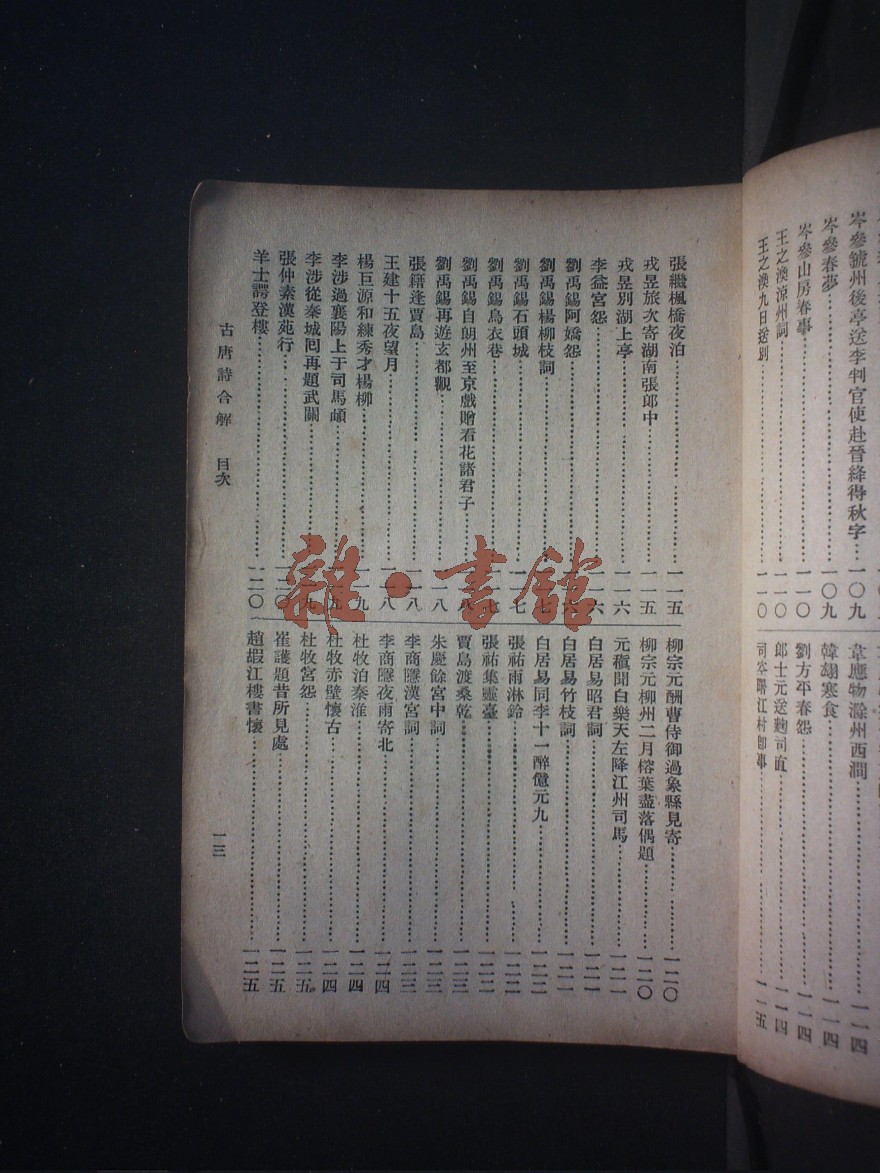 岑參虢州後亭送李判官使赴晉絳得秋字…一〇九
岑參春夢…一〇九
岑參山房春事…一一〇
王之渙涼州詞…一一〇
王之渙九日送別…一一〇
韋應物滁州西澗…一一四
韓翃寒食…一一四
劉方平春怨…一一四
郎士元送麴司直…一一四
司空曙江村卽事…一一五
張繼楓橋夜泊…一一五
戎昱旅次寄湖南張郎中…一一五
戎昱別湖上亭…一一六
李益宮怨…一一六
劉禹錫阿嬌怨…一一六
劉禹錫楊柳枝詞…一一七
劉禹錫石頭城…一一七
劉禹錫烏衣巷…一一七
劉禹錫自朗州至京戲贈看花諸君子…一一八
劉禹錫再遊玄都觀…一一八
張籍逢賈島…一一八
王建十五夜望月…一一八
楊巨源和練秀才楊柳…一一九
李涉過襄陽上于司馬頔…一一九
李涉從秦城囘再題武關…一一九
張仲素漢苑行…一二〇
羊士諤登樓…一二〇
柳宗元酬曹侍御過象縣見寄…一二〇
柳宗元柳州二月榕葉盡落偶題…一二〇
元稹聞白樂天左降江州司馬…一二一
白居易昭君詞…一二一
白居易竹枝詞…一二一
白居易同李十一醉憶元九…一二二
張祐雨淋鈴…一二二
張祐集靈臺…一二二
賈島渡桑乾…一二三
朱慶餘宮中詞…一二三
李商隱漢宮詞…一二三
李商隱夜雨寄北…一二四
杜牧泊秦淮…一二四
杜牧赤壁懷古…一二四
杜牧宮怨…一二五
崔護題昔所見處…一二五
趙嘏江樓書懷…一二五
古唐詩合解 目次
一三
雜·書館